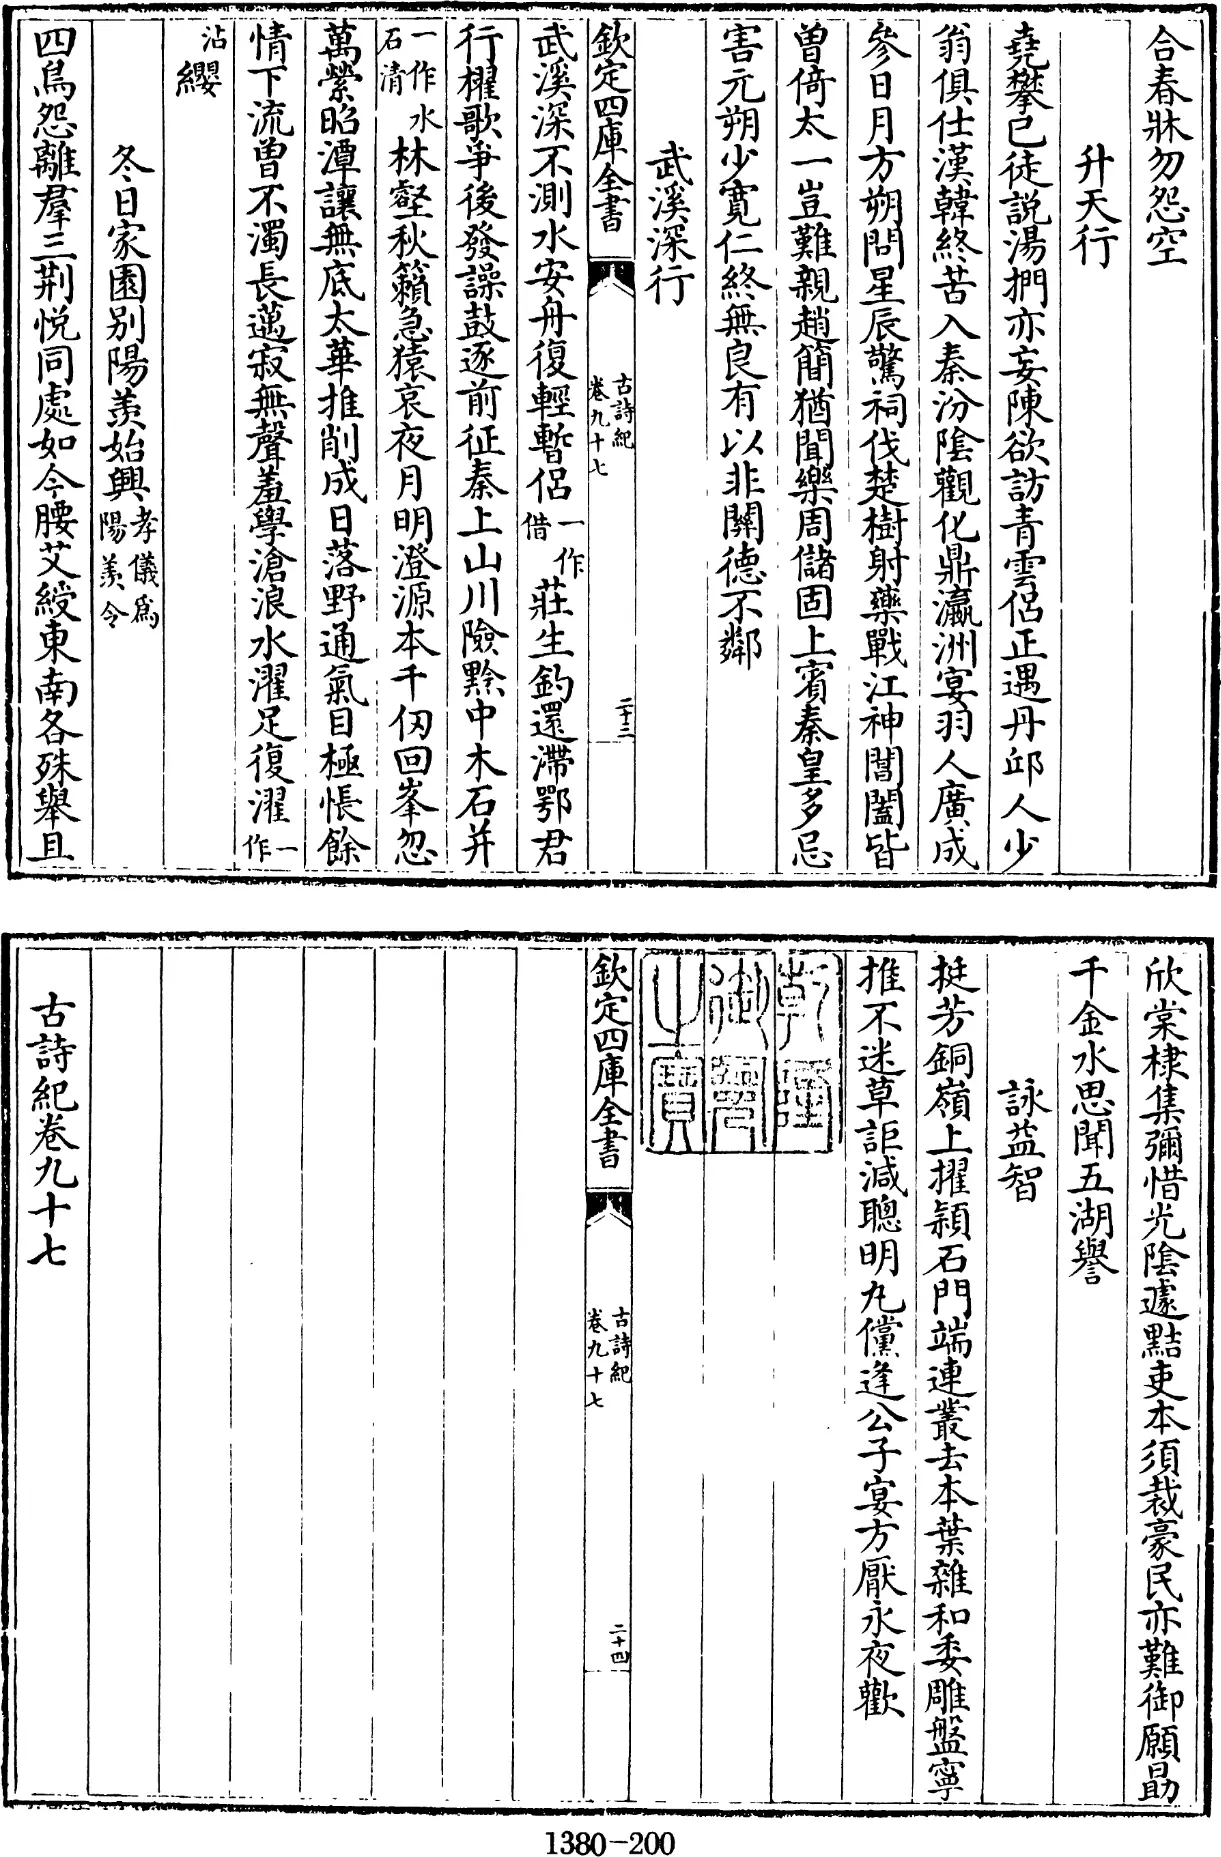 合春牀勿怨空
升天行
堯攀已徒説湯捫亦妄陳欲訪青雲侶正遇丹邱人少
翁俱仕漢韓終苦入秦汾陰觀化鼎瀛洲宴羽人廣成
參日月方朔問星辰驚祠伐楚樹射藥戰江神閶闔皆
曾倚太一豈難親趙簡猶聞樂周儲固上賓秦皇多忌
害元朔少寛仁終無良有以非關德不鄰
武溪深行
欽定四庫全書
古詩紀
卷九十七
二十三
武溪深不測水安舟復輕暫侶一作借莊生釣還滯鄂君
行櫂歌爭後發譟鼓逐前征秦上山川險黔中木石并
一作水石清林壑秋籟急猿哀夜月明澄源本千仞回峯忽
萬縈昭潭讓無底太華推削成日落野通氣目極悵餘
情下流曾不濁長邁寂無聲羞學滄浪水濯足復濯一作
沾纓
冬日家園别陽羨始興孝儀為陽羨令
四鳥怨離羣三荆悦同處如今腰艾綬東南各殊舉且
欣棠棣集彌惜光陰遽點吏本須裁豪民亦難御願勗
千金水思聞五湖譽
詠益智
挺芳銅嶺上擢穎石門端連叢去本葉雜和委雕盤寧
推不迷草詎減聰明丸儻逢公子宴方厭永夜歡
乾隆御覽之寶
欽定四庫全書
古詩紀
卷九十七
二十四
古詩紀卷九十七
1380-200